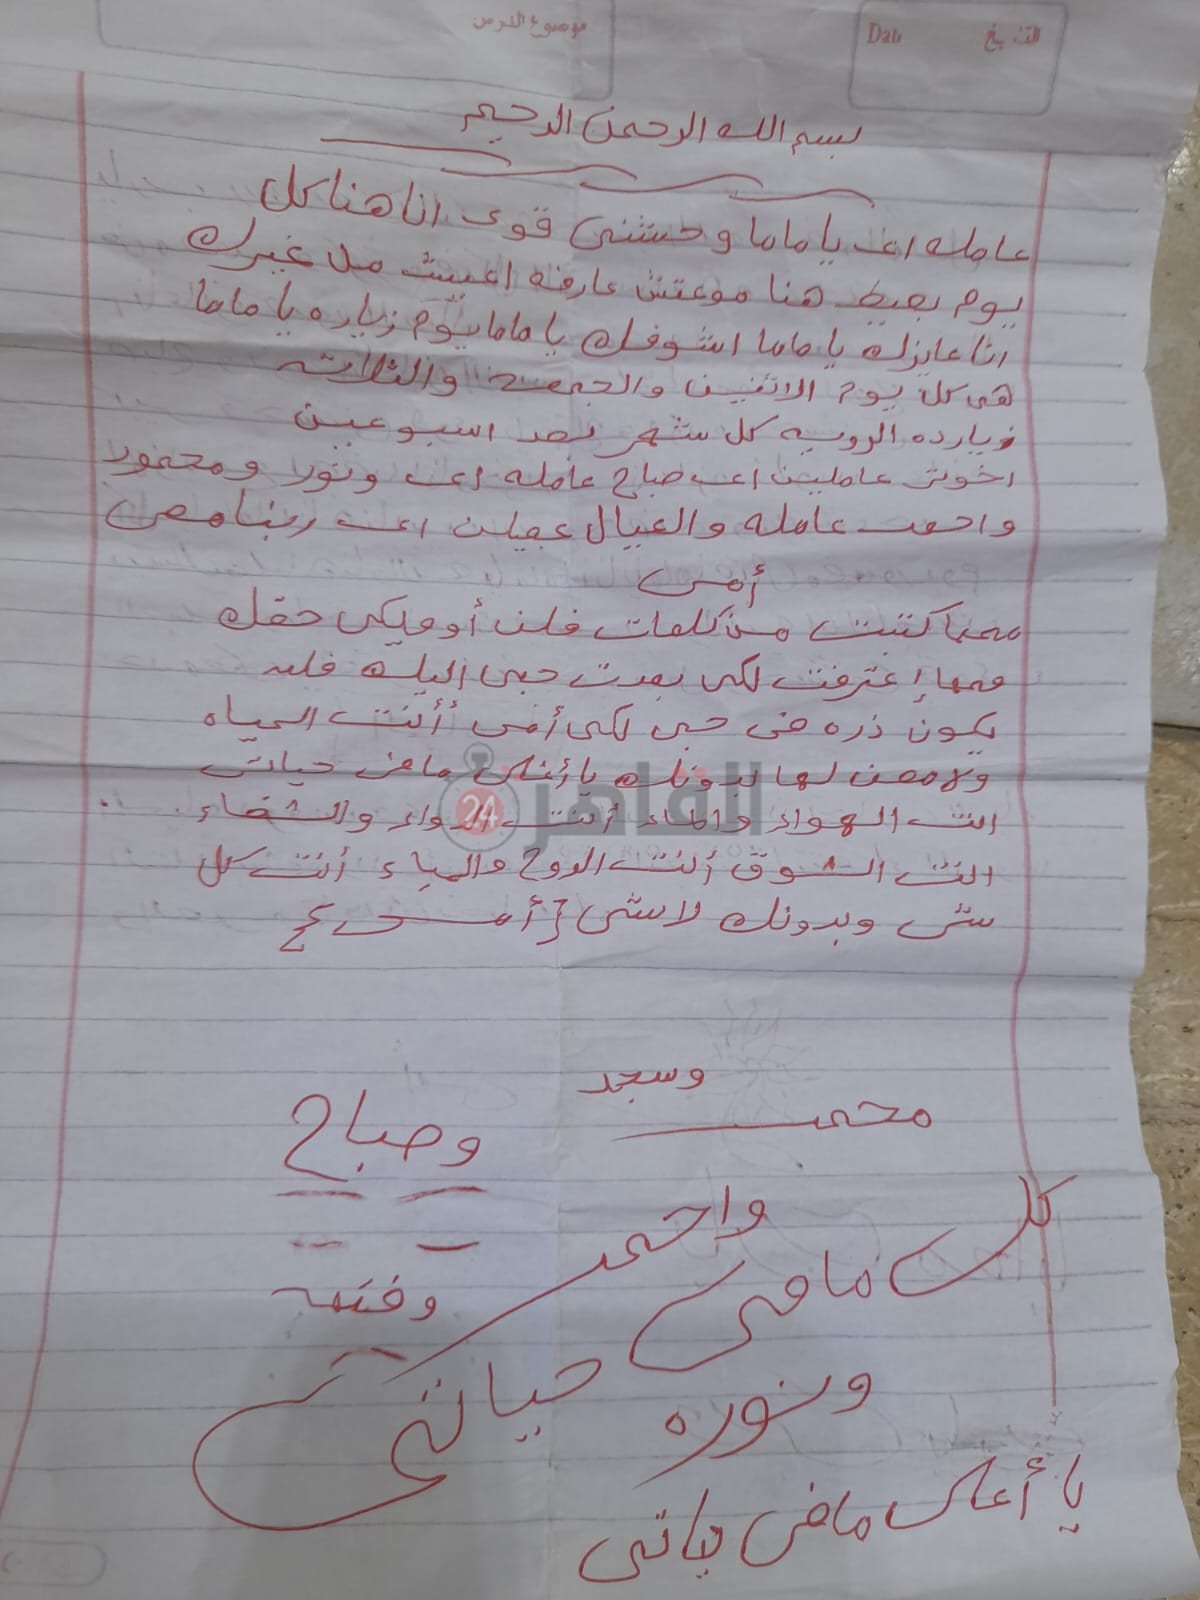 موضوع الدرس
التاريخ Date
بسم الله الرحمن الرحيم
عامله اى يا ماما وحشتنى قوى انا هنا كل
يوم بعيط هنا موعتش عارفه اعيش من غيرك
انا عايزك يا ماما اشوفك يا ماما يوم زياره يا ماما
هى كل يوم الاتنين والجمعه والثلاثه
زيارده الرويه كل شهر بعد اسبوعين
اخوتى عاملين اى صباح عامله اى ونورا ومحمود
واحمد عامله والعيال عملين اى ربنا معى
أمى
مهما كتبت من كلمات فلن أوفيكى حقك
ومهما إعترفت لكى بمدى حبى اليك فلن
يكون ذره فى حبى لكى أمى أنت الحياه
ولا معنى لها بدونك يا أغلى ما فى حياتى
انت الهواء والماء أنت الدواء والشفاء
انت الشوق أنت الروح والحياء أنت كل
شى وبدونك لاشى {أمى}
وسجد
محمد
وصباح
كل ما فى حياتى
واحمد
وفتحه
ونوره
يا أغلى ما فى حياتى
القاهرة 24